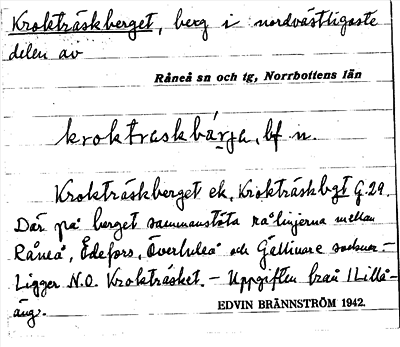 Krokträskberget, berg i nordvästligaste
delen av
Råneå sn och tg, Norrbottens län
kroktraskbárja, bf n.
Krokträskberget ek. Krokträskbgt G.29.
Där på berget sammanstöta rålinjerna mellan
Råneå, Edefors, Överluleå och Gällivare socknar –
Ligger N.O. Krokträsket. – Uppgiften från 1 Lillå-
äng.
EDVIN BRÄNNSTRÖM 1942.